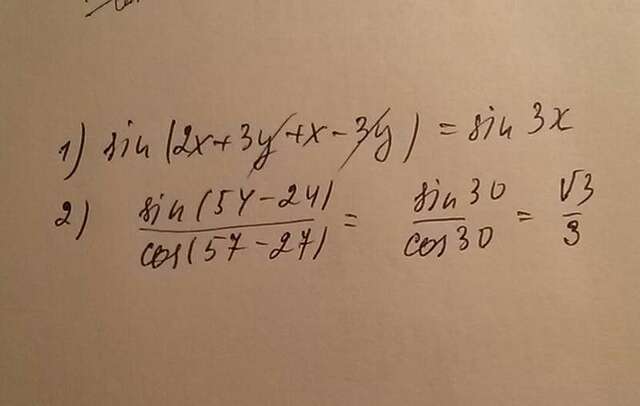 1) sin (2x+3y+x-3y) = sin 3x
2) sin(54-24) / cos(57-27) = sin 30 / cos 30 = √3 / 3